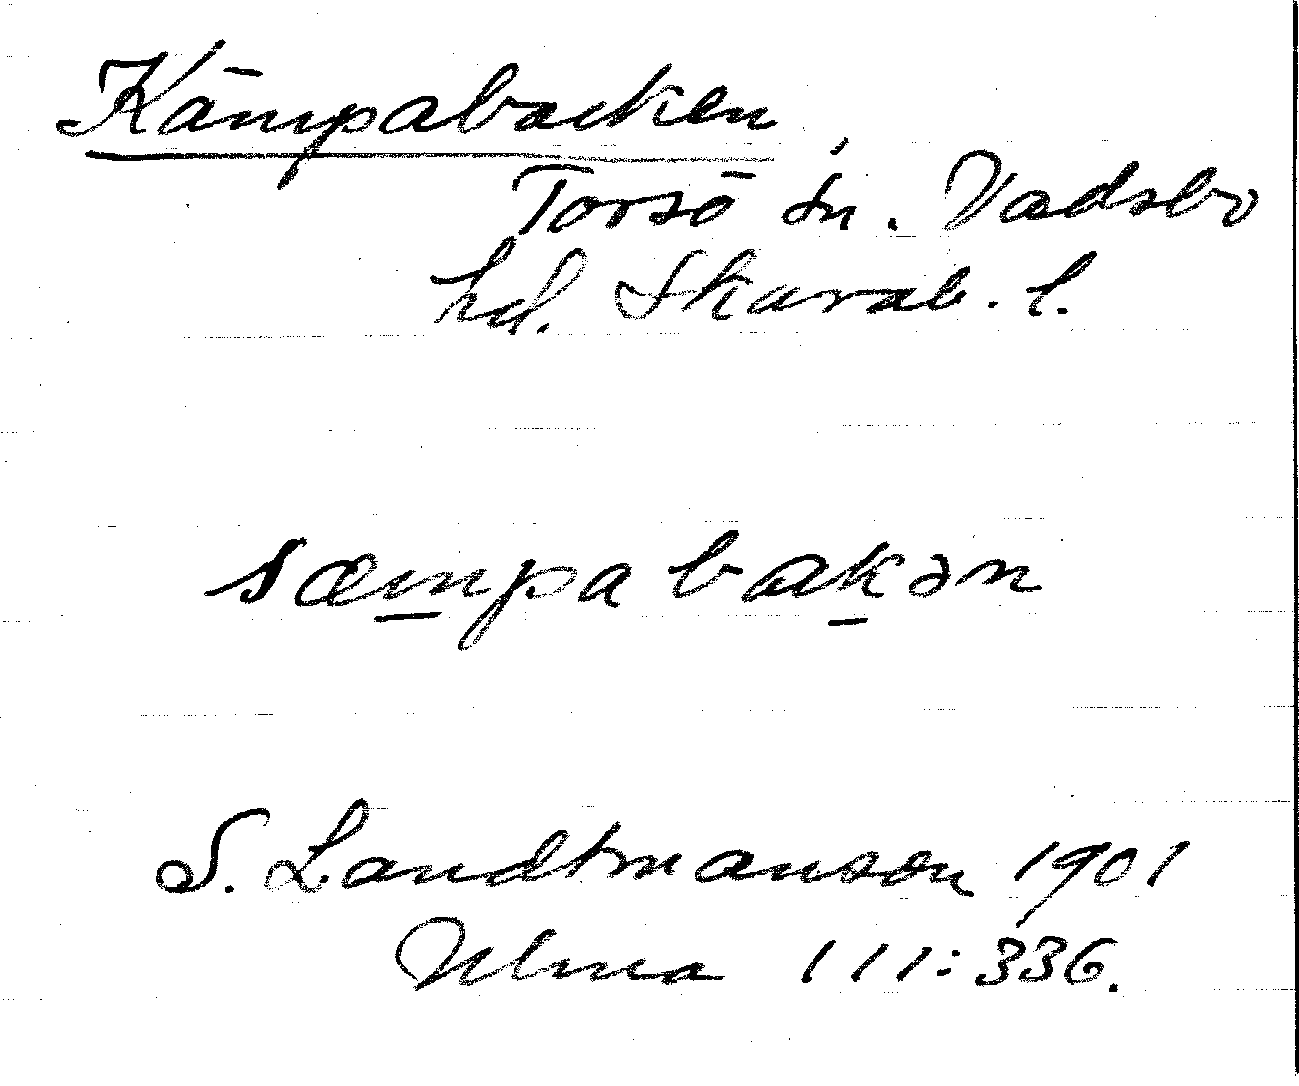 Kämpabacken
Torsö sn. Vadsbo
hd. Skarab. l.
sæmpa bakən
S. Landtmanson 1901
Ulma 111:336.